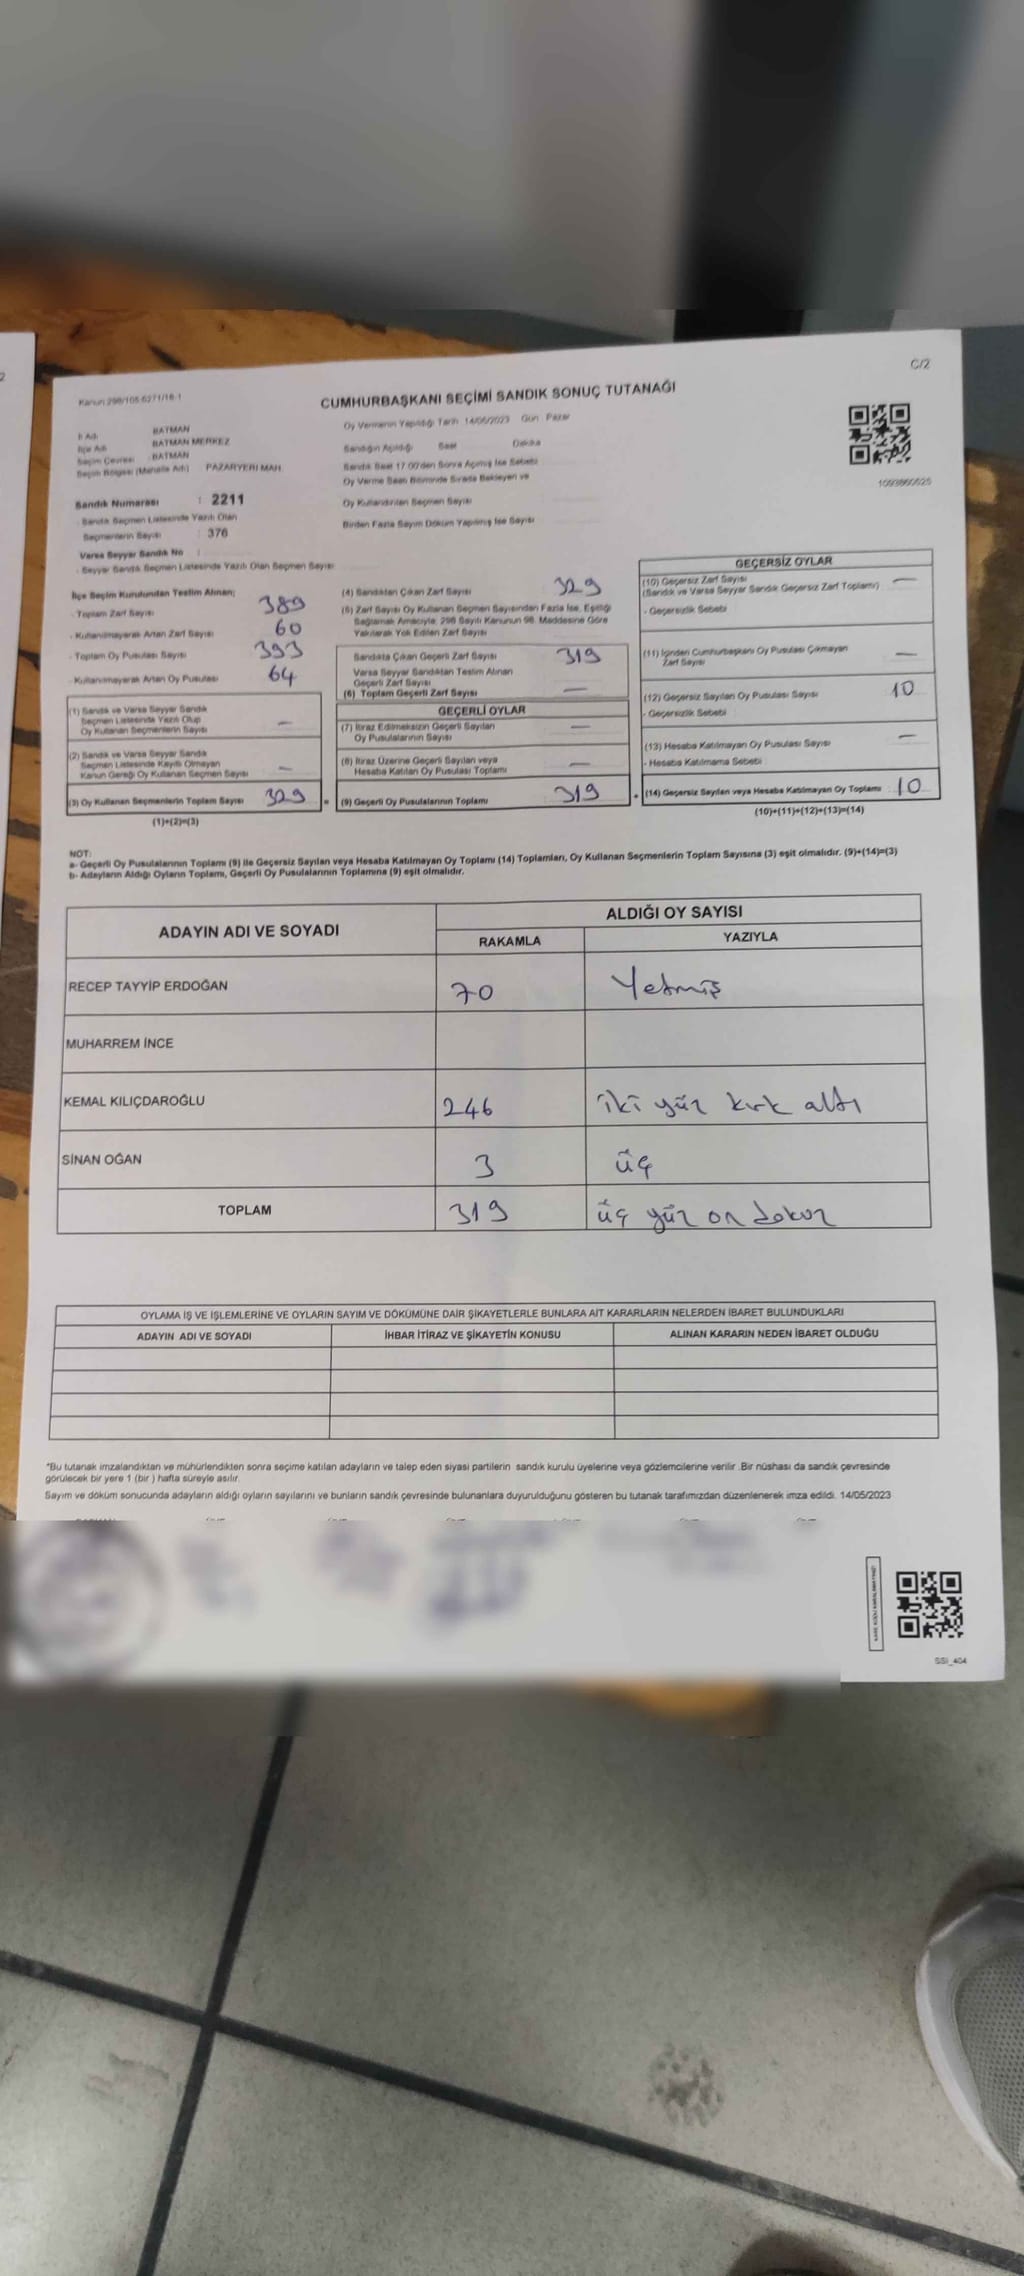 2
C/2
Kanun 298/105-6271/18-1
CUMHURBAŞKANI SEÇİMİ SANDIK SONUÇ TUTANAĞI
İl Adı BATMAN
İlçe Adı BATMAN MERKEZ
Seçim Çevresi : BATMAN
Seçim Bölgesi (Mahalle Adı) PAZARYERİ MAH.
Oy Vermenin Yapıldığı Tarih 14/05/2023 Gün : Pazar
Sandığın Açıldığı Saat Dakika
Sandık Saat 17.00'den Sonra Açılmış İse Sebebi
Oy Verme Saati Bitiminde Sırada Bekleyen ve
Oy Kullandırılan Seçmen Sayısı
Birden Fazla Sayım Döküm Yapılmış İse Sayısı
1093860525
Sandık Numarası : 2211
- Sandık Seçmen Listesinde Yazılı Olan
Seçmenlerin Sayısı : 376
Varsa Seyyar Sandık No :
- Seyyar Sandık Seçmen Listesinde Yazılı Olan Seçmen Sayısı
İlçe Seçim Kurulundan Teslim Alınan;
- Toplam Zarf Sayısı 389
- Kullanılmayarak Artan Zarf Sayısı 60
- Toplam Oy Pusulası Sayısı 393
- Kullanılmayarak Artan Oy Pusulası 64
(1) Sandık ve Varsa Seyyar Sandık
Seçmen Listesinde Yazılı Olup
Oy Kullanan Seçmenlerin Sayısı —
(2) Sandık ve Varsa Seyyar Sandık
Seçmen Listesinde Kayıtlı Olmayan
Kanun Gereği Oy Kullanan Seçmen Sayısı —
(3) Oy Kullanan Seçmenlerin Toplam Sayısı 329
(1)+(2)=(3)
(4) Sandıktan Çıkan Zarf Sayısı 329
(5) Zarf Sayısı Oy Kullanan Seçmen Sayısından Fazla İse, Eşitliği
Sağlamak Amacıyla, 298 Sayılı Kanunun 98. Maddesine Göre
Yakılarak Yok Edilen Zarf Sayısı
Sandıkta Çıkan Geçerli Zarf Sayısı 319
Varsa Seyyar Sandıktan Teslim Alınan
Geçerli Zarf Sayısı
(6) Toplam Geçerli Zarf Sayısı —
GEÇERLİ OYLAR
(7) İtiraz Edilmeksizin Geçerli Sayılan
Oy Pusulalarının Sayısı —
(8) İtiraz Üzerine Geçerli Sayılan veya
Hesaba Katılan Oy Pusulası Toplamı —
= (9) Geçerli Oy Pusulalarının Toplamı 319
GEÇERSİZ OYLAR
(10) Geçersiz Zarf Sayısı
(Sandık ve Varsa Seyyar Sandık Geçersiz Zarf Toplamı) —
- Geçersizlik Sebebi
(11) İçinden Cumhurbaşkanı Oy Pusulası Çıkmayan
Zarf Sayısı —
(12) Geçersiz Sayılan Oy Pusulası Sayısı 10
- Geçersizlik Sebebi
(13) Hesaba Katılmayan Oy Pusulası Sayısı —
- Hesaba Katılmama Sebebi
+ (14) Geçersiz Sayılan veya Hesaba Katılmayan Oy Toplamı : 10
(10)+(11)+(12)+(13)=(14)
NOT:
a- Geçerli Oy Pusulalarının Toplamı (9) ile Geçersiz Sayılan veya Hesaba Katılmayan Oy Toplamı (14) Toplamları, Oy Kullanan Seçmenlerin Toplam Sayısına (3) eşit olmalıdır. (9)+(14)=(3)
b- Adayların Aldığı Oyların Toplamı, Geçerli Oy Pusulalarının Toplamına (9) eşit olmalıdır.
ADAYIN ADI VE SOYADI ALDIĞI OY SAYISI
RAKAMLA YAZIYLA
RECEP TAYYİP ERDOĞAN 70 Yetmiş
MUHARREM İNCE
KEMAL KILIÇDAROĞLU 246 iki yüz kırk altı
SİNAN OĞAN 3 üç
TOPLAM 319 üç yüz on dokuz
OYLAMA İŞ VE İŞLEMLERİNE VE OYLARIN SAYIM VE DÖKÜMÜNE DAİR ŞİKAYETLERLE BUNLARA AİT KARARLARIN NELERDEN İBARET BULUNDUKLARI
ADAYIN ADI VE SOYADI İHBAR İTİRAZ VE ŞİKAYETİN KONUSU ALINAN KARARIN NEDEN İBARET OLDUĞU
*Bu tutanak imzalandıktan ve mühürlendikten sonra seçime katılan adayların ve talep eden siyasi partilerin sandık kurulu üyelerine veya gözlemcilerine verilir. Bir nüshası da sandık çevresinde
görülecek bir yere 1 (bir ) hafta süreyle asılır.
Sayım ve döküm sonucunda adayların aldığı oyların sayılarını ve bunların sandık çevresinde bulunanlara duyurulduğunu gösteren bu tutanak tarafımızdan düzenlenerek imza edildi. 14/05/2023
SSI_404